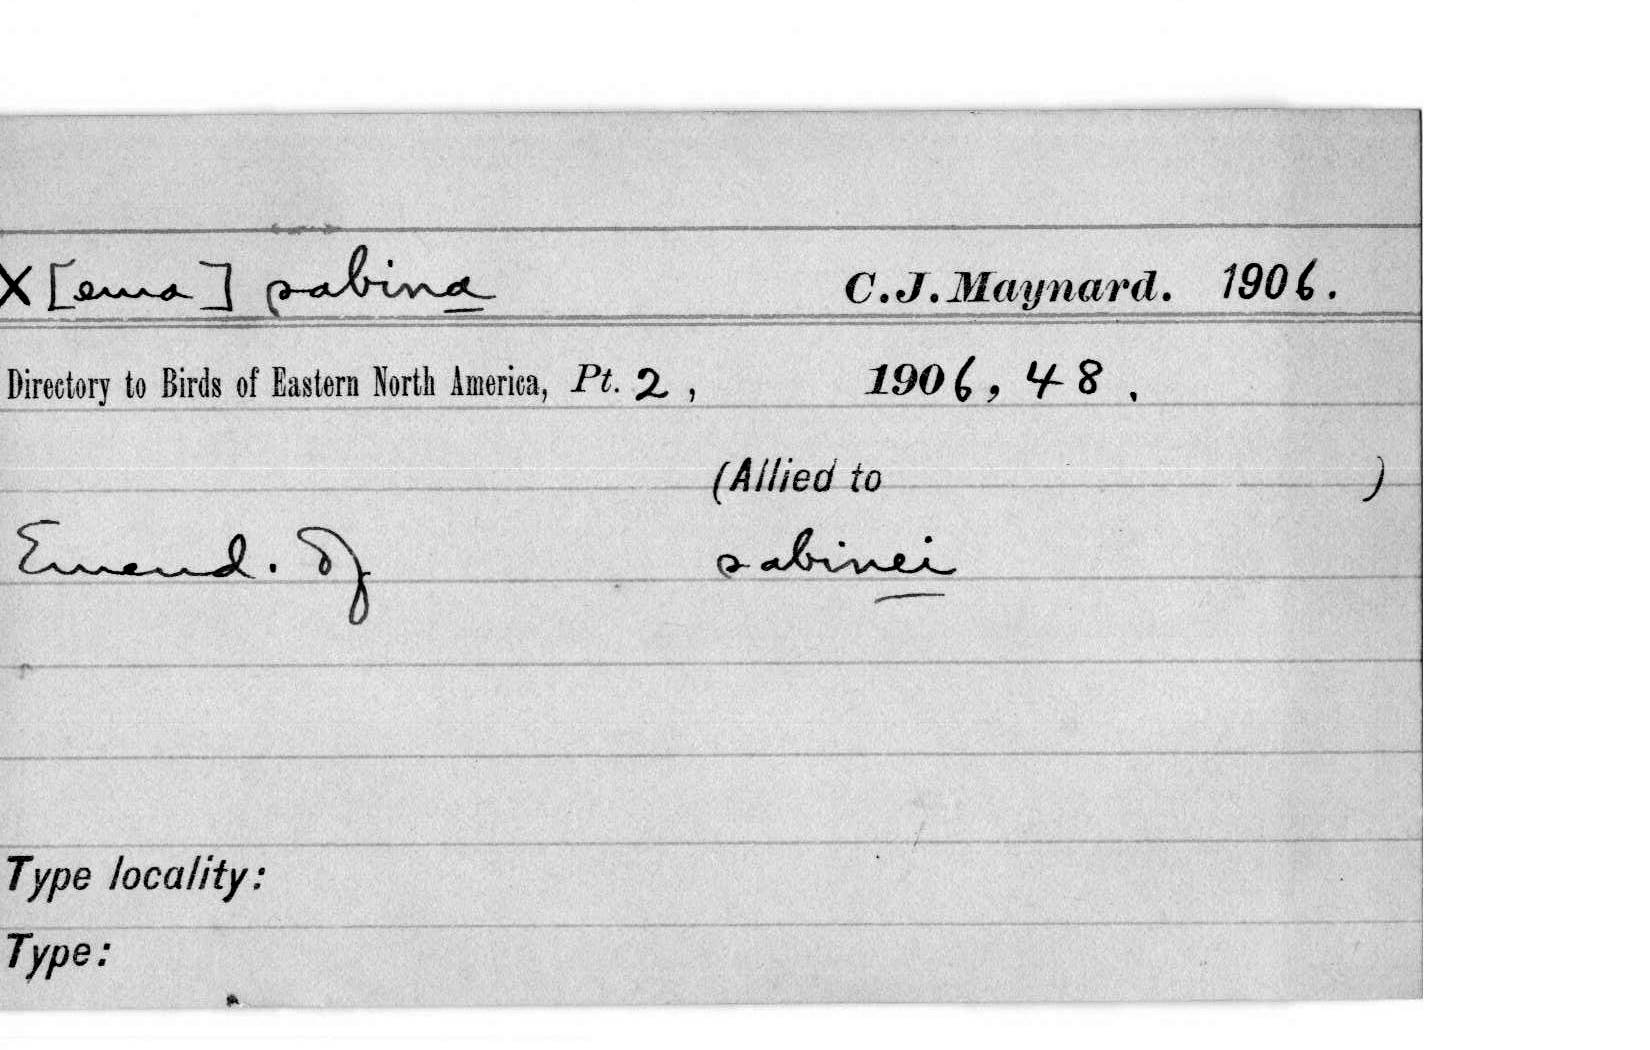 X[ema] sabina C.J. Maynard. 1906.
Directory to Birds of Eastern North America, Pt. 2, 1906, 48.
(Allied to )
Emend. of sabinei
Type locality:
Type: